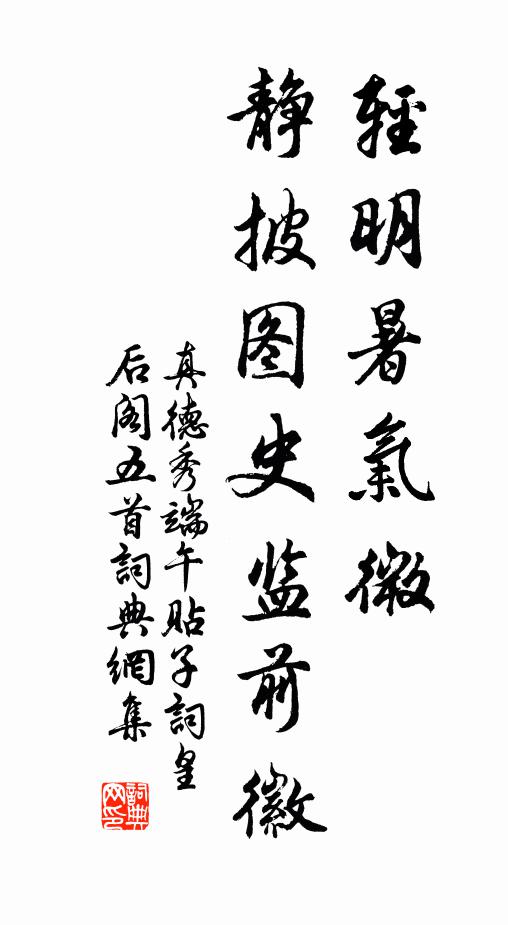 輕明暑氣微
静披图史监前徽
真德秀端午貼子詞皇
后阁五首詞典網集
詞典网印